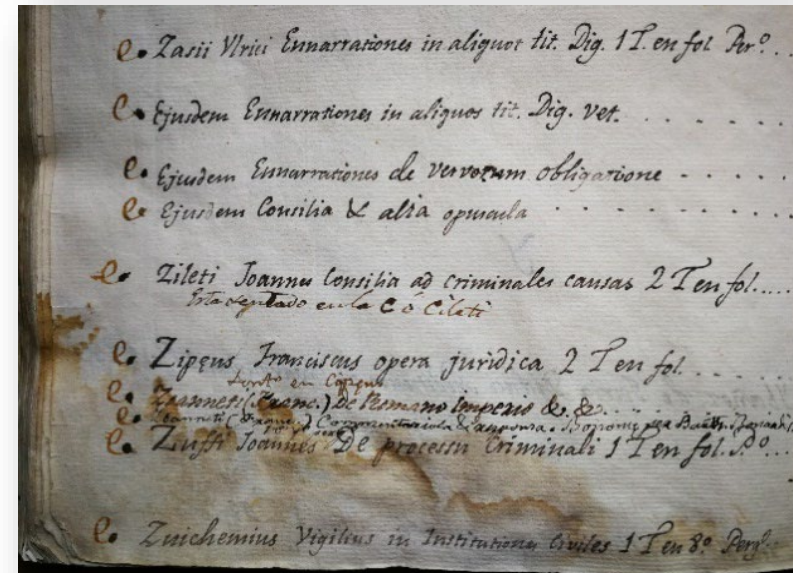 e. Zasii Vlrici Ennarrationes in aliquot tit. Dig. 1 T. en fol Per.º . .
e. Ejusdem Ennarrationes in aliquos tit. Dig. vet. . . . . . .
e. Ejusdem Ennarrationes de Vervorum obligatione - - - - -
e. Ejusdem Consilia & alia opuscula . . . . . . . .
e. Zileti Joannes Consilia ad criminales causas 2 T en fol. . . . .
en la C ó Cileti
e. Zipeus Franciscus opera juridica 2 T en fol. . . . .
en Cipeus
e. Zoanneti (Franc.) De Romano Imperio &. &. . . . .
e. Zoanneti (Franc.)
e. Zuffi Joannes De processu Criminali 1 T en fol. P.º . .
e. Zuichemius Vigilius in Institutiones Civiles 1 T en 8.º Perg.º